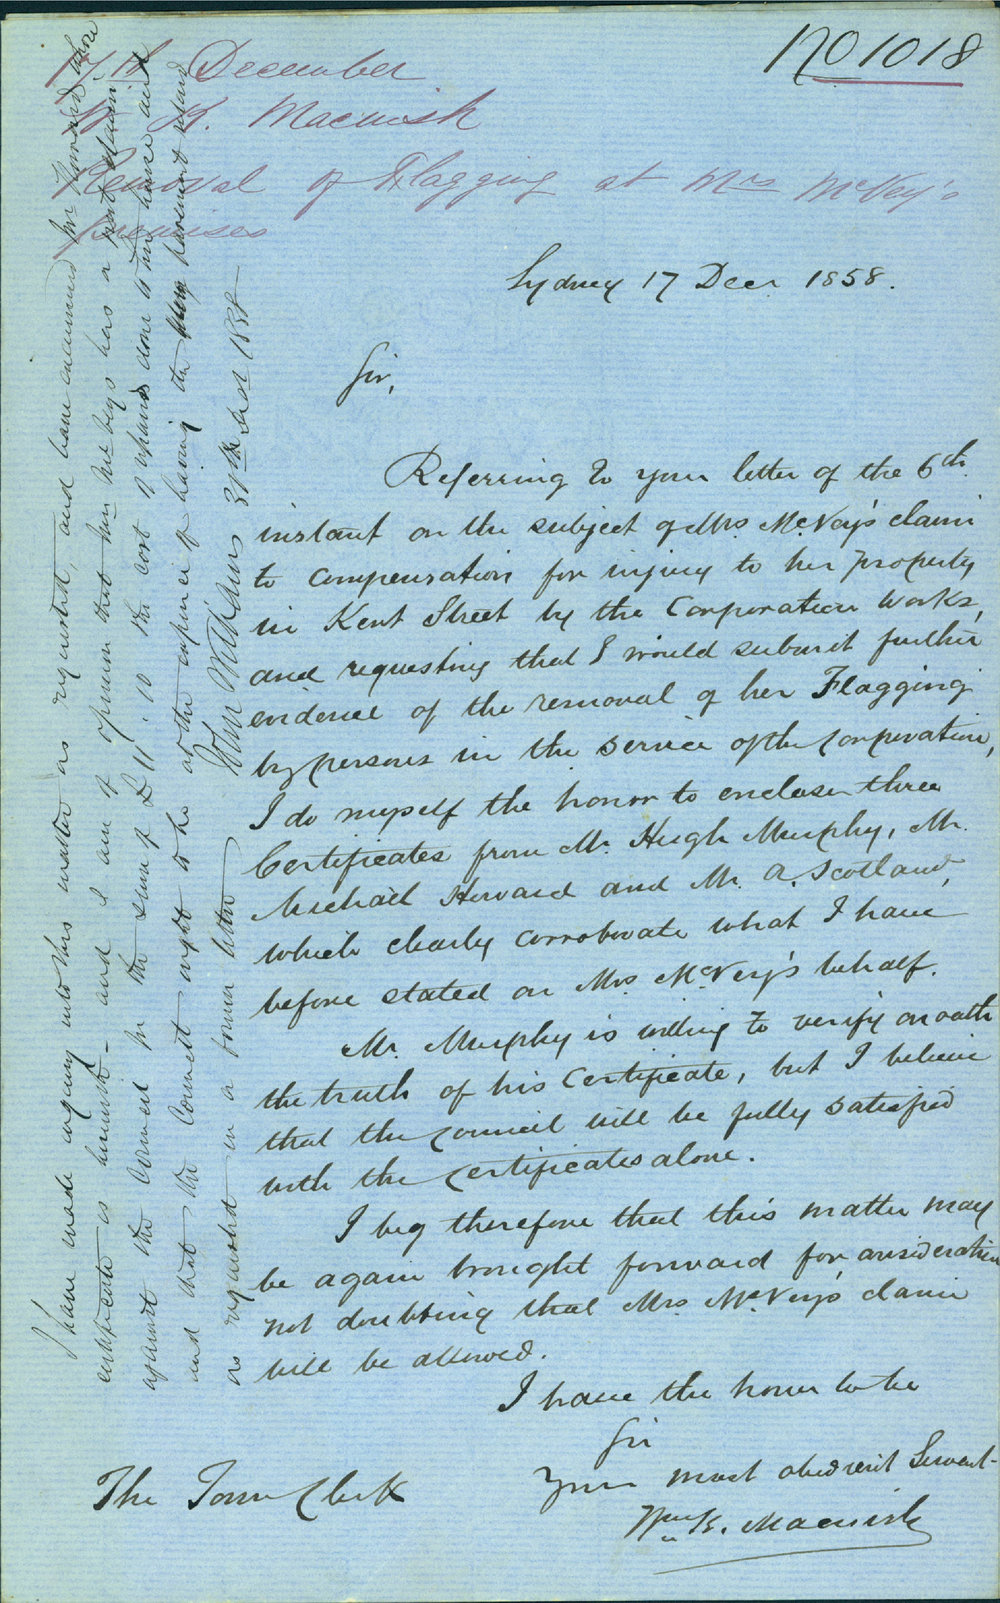 No 1018
17th December
W. K. Macnish
Removal of Flagging at Mrs McVey's
premises
Sydney 17 Decr 1858.
Sir,
Referring to your letter of the 6th
instant on the subject of Mrs McVey's claim
to compensation for injury to her property
in Kent Street by the Corporation Works,
and requesting that I would submit further
evidence of the removal of her Flagging
by persons in the service of the Corporation,
I do myself the honor to enclose three
Certificates from Mr. Hugh Murphy, Mr.
Michael Howard and Mr. A. Scotland,
which clearly corroborate what I have
before stated on Mrs McVey's behalf.
Mr. Murphy is willing to verify on oath
the truth of his Certificate, but I believe
that the Council will be fully satisfied
with the Certificates alone.
I beg therefore that this matter may
be again brought forward for consideration
not doubting that Mrs McVey's claim
will be allowed.
I have the honor to be
Sir
Your most obedient Servant
Wm K. Macnish
The Town Clerk
I have made inquiry into this matter as requested, and have examined Mr Howard whose
certificate is herewith - and I am of opinion that Mrs McVeys has a just claim
against the Council for the sum of £11.10 the cost of repairs done to the house and
and that the Council ought to be at the expense of having the pavement relaid
as requested in a former letter
John Williams 31st Decr 1858